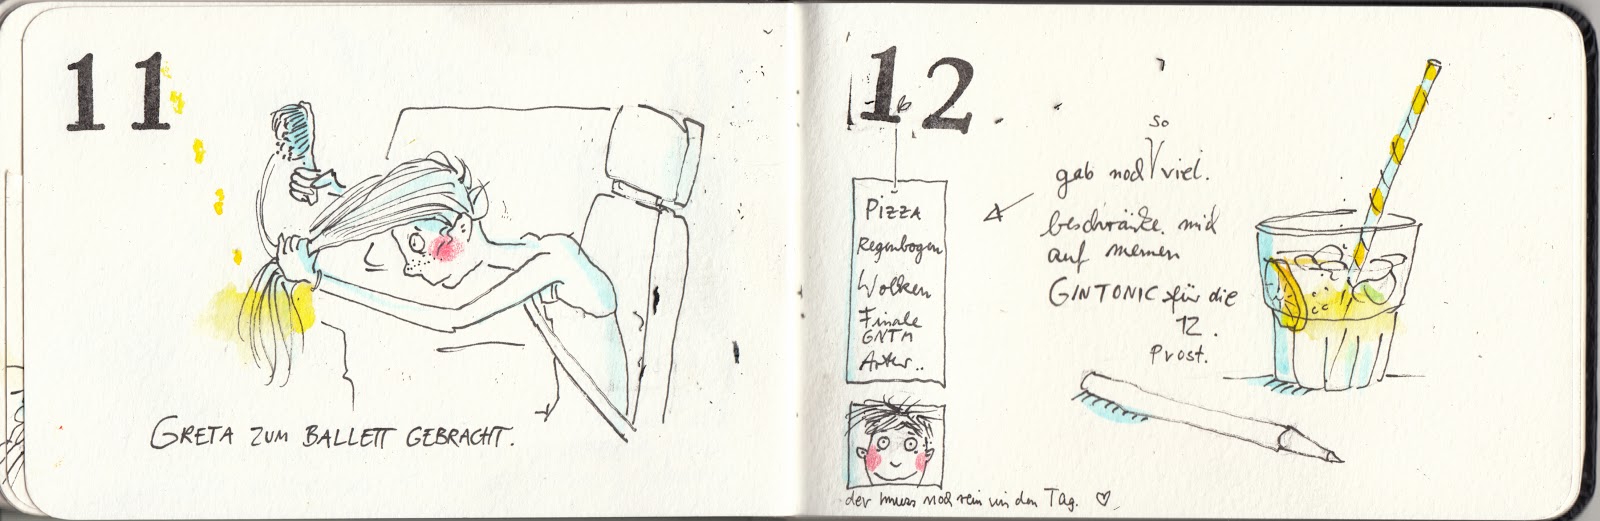 11
GRETA ZUM BALLETT GEBRACHT.
12
PIZZA
Regenbogen
Wolken
Finale
GNTM
so
gab noch viel.
beschränke mich
auf meinen
GINTONIC für die
12.
Prost.
der muss noch rein in den Tag. ♡